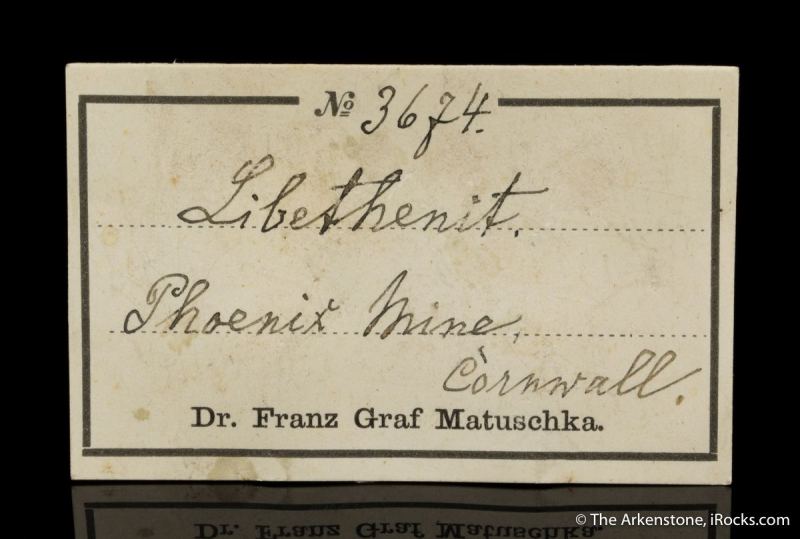 № 3674.
Libethenit.
Phoenix Mine,
Cornwall.
Dr. Franz Graf Matuschka.
© The Arkenstone, iRocks.com